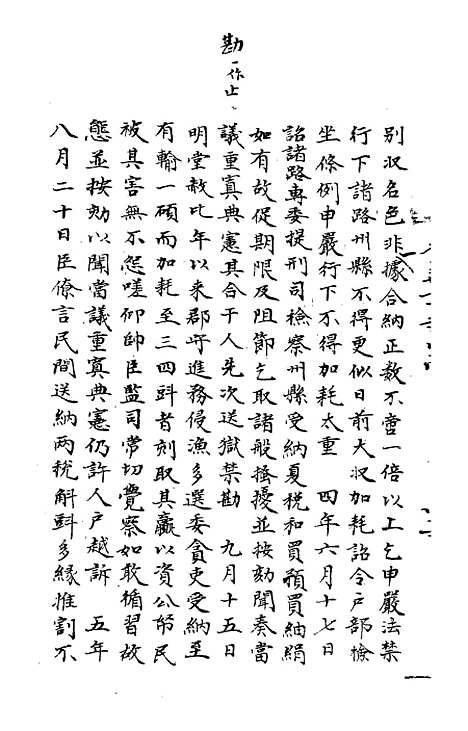 勘一作止
別収名色非據合納正数不啻一倍以上乞申嚴法禁
行下諸路州縣不得更似日前大収加耗詔令戸部檢
坐條例申嚴行下不得加耗太重　四年六月十七日
詔諸路専委提刑司檢察州縣受納夏税和買預買紬絹
如有故促期限及阻節乞取諸般搔擾並按劾聞奏當
議重寘典憲其合干人先次送獄禁勘　九月十五日
明堂赦比年以来郡守進務侵漁多選委貪吏受納至
有輸一碩而加耗至三四㪷者刻取其贏以資公帑民
被其害無不怨嗟仰帥臣監司常切覺察如敢循習故
態並按劾以聞當議重寘典憲仍許人戸越訴　五年
八月二十日臣僚言民間送納两税斛㪷多縁推割不